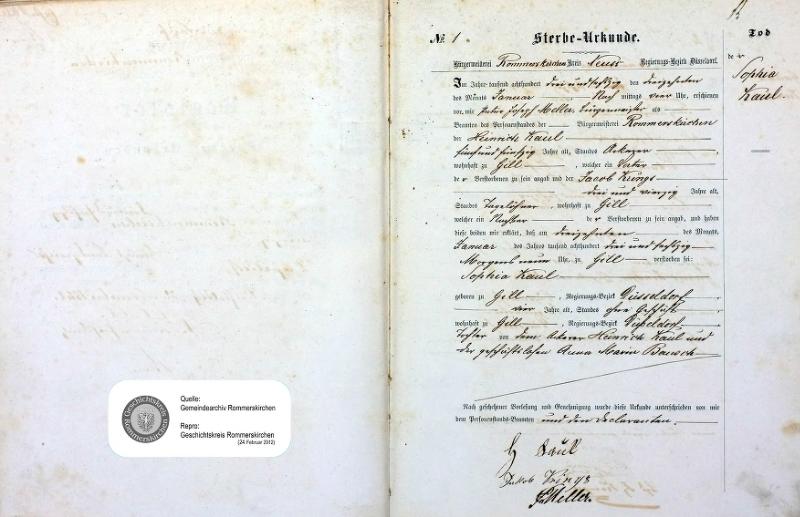 Quelle:
Gemeindearchiv Rommerskirchen
Repro:
Geschichtskreis Rommerskirchen
(24.Februar 2012)
Geschichtskreis
Rommerskirchen
№ 1
Sterbe-Urkunde.
Bürgermeisterei Rommerskirchen Kreis Neuss Regierungs-Bezirk Düsseldorf.
Im Jahre tausend achthundert drei und sechszig den dreizehnten
des Monats Januar, Nach mittags vier Uhr, erschienen
vor mir Peter Joseph Meller, Bürgermeister als
Beamten des Personenstandes der Bürgermeisterei Rommerskirchen
der Heinrich Kaul
fünf und fünfzig Jahre alt, Standes Ackerer,
wohnhaft zu Gill, welcher ein Vater
der Verstorbenen zu sein angab und der Jacob
drei und vierzig Jahre alt,
Standes Tagelöhner, wohnhaft zu Gill
welcher ein Nachbar der Verstorbenen zu sein angab, und haben
diese beiden mir erklärt, daß am dreizehnten des Monats
Januar des Jahres tausend achthundert drei und sechszig
Morgens neun Uhr, zu Gill verstorben sei:
Sophia Kaul
geboren zu Gill, Regierungs-Bezirk Düsseldorf,
vier Jahre alt, Standes ohne Geschäft
wohnhaft zu Gill, Regierungs-Bezirk Düsseldorf,
Tochter von dem Ackerer Heinrich Kaul und
der geschäftslosen Anna Maria Bausch
Nach geschehener Vorlesung und Genehmigung wurde diese Urkunde unterschrieben von mir
dem Personenstands-Beamten und den Declaranten.
H Kaul
Jakob
Meller.
Tod
der
Sophia
Kaul.